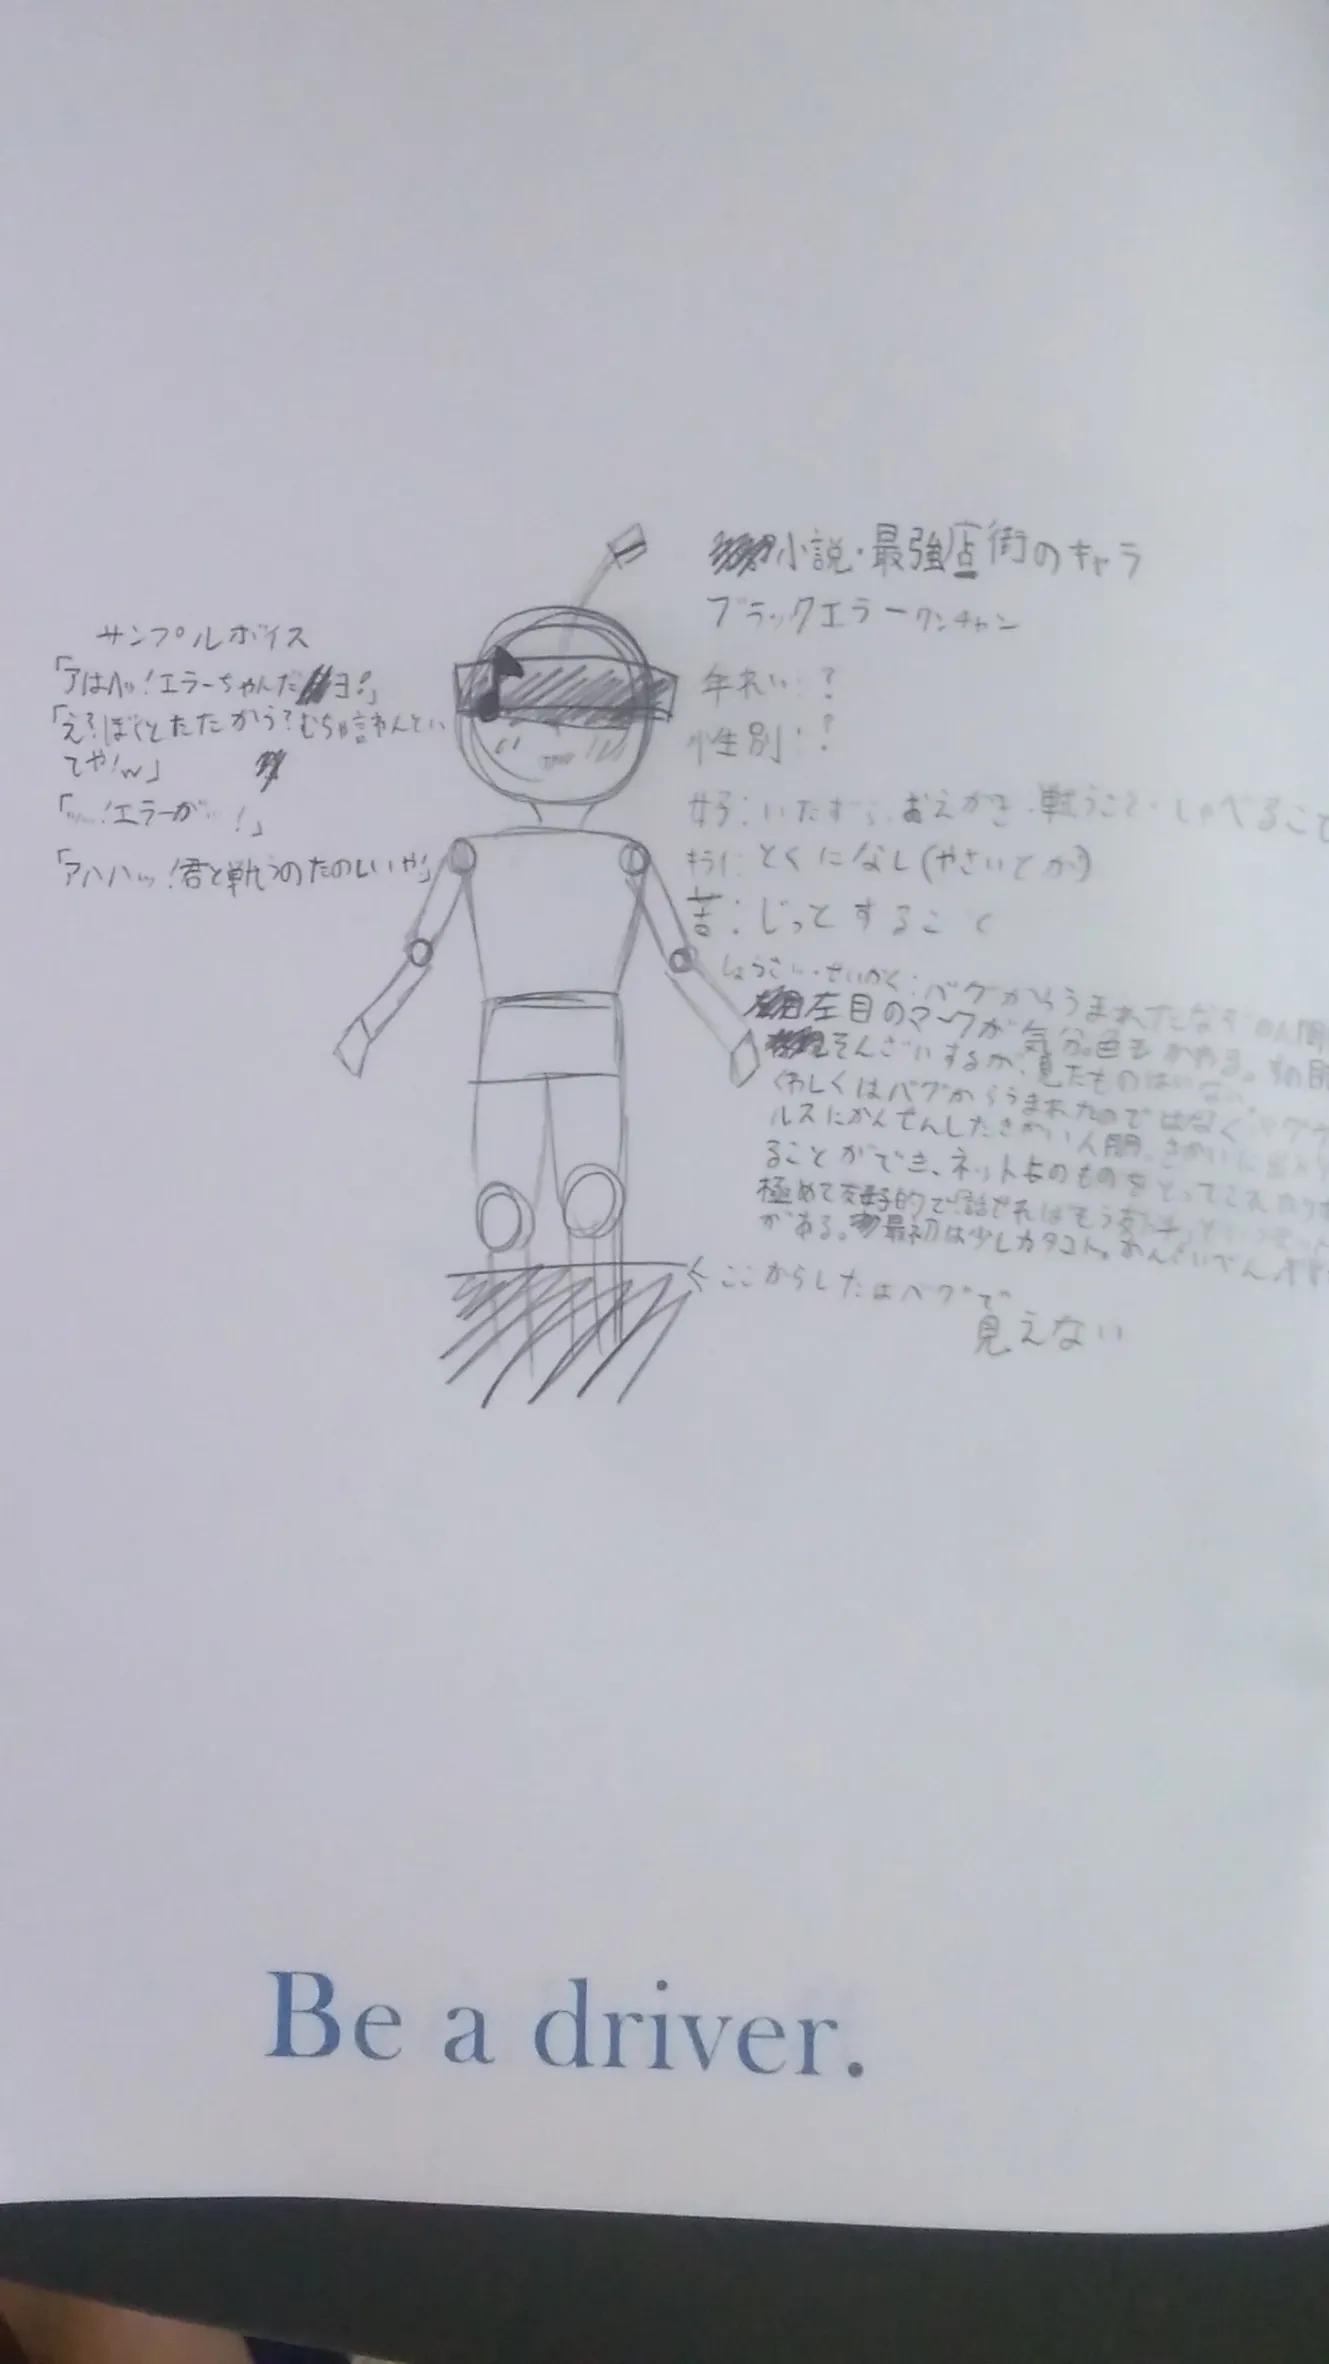 サンプルボイス
「アはハッ!エラーちゃんだヨ!」
「え?ぼくとたたかう?むちゃ言わんとい
てや!w」
「…!エラーが…!」
「アハハッ!君と戦うのたのしいや!」
小説・最強店街のキャラ
ブラックエラークンチャン
年れい:?
性別:?
好:いたずら・おえかき・戦うこと・しゃべること
キライ:とくになし(やさいとか)
苦:じっとすること
しょうさい・せいかく:バグからうまれたなぞの人間
左目のマークが気分。色もかわる。
そんざいするが、見たものはいない。
くわしくはバグからうまれたのではなく
ルスにかんせんしたきかい人間。きかいに
ることができ、ネット上のものをとってこれたり
極めて友好的で話せればもう
がある。最初は少しカタコト。
ここからしたはバグで
見えない
Be a driver.